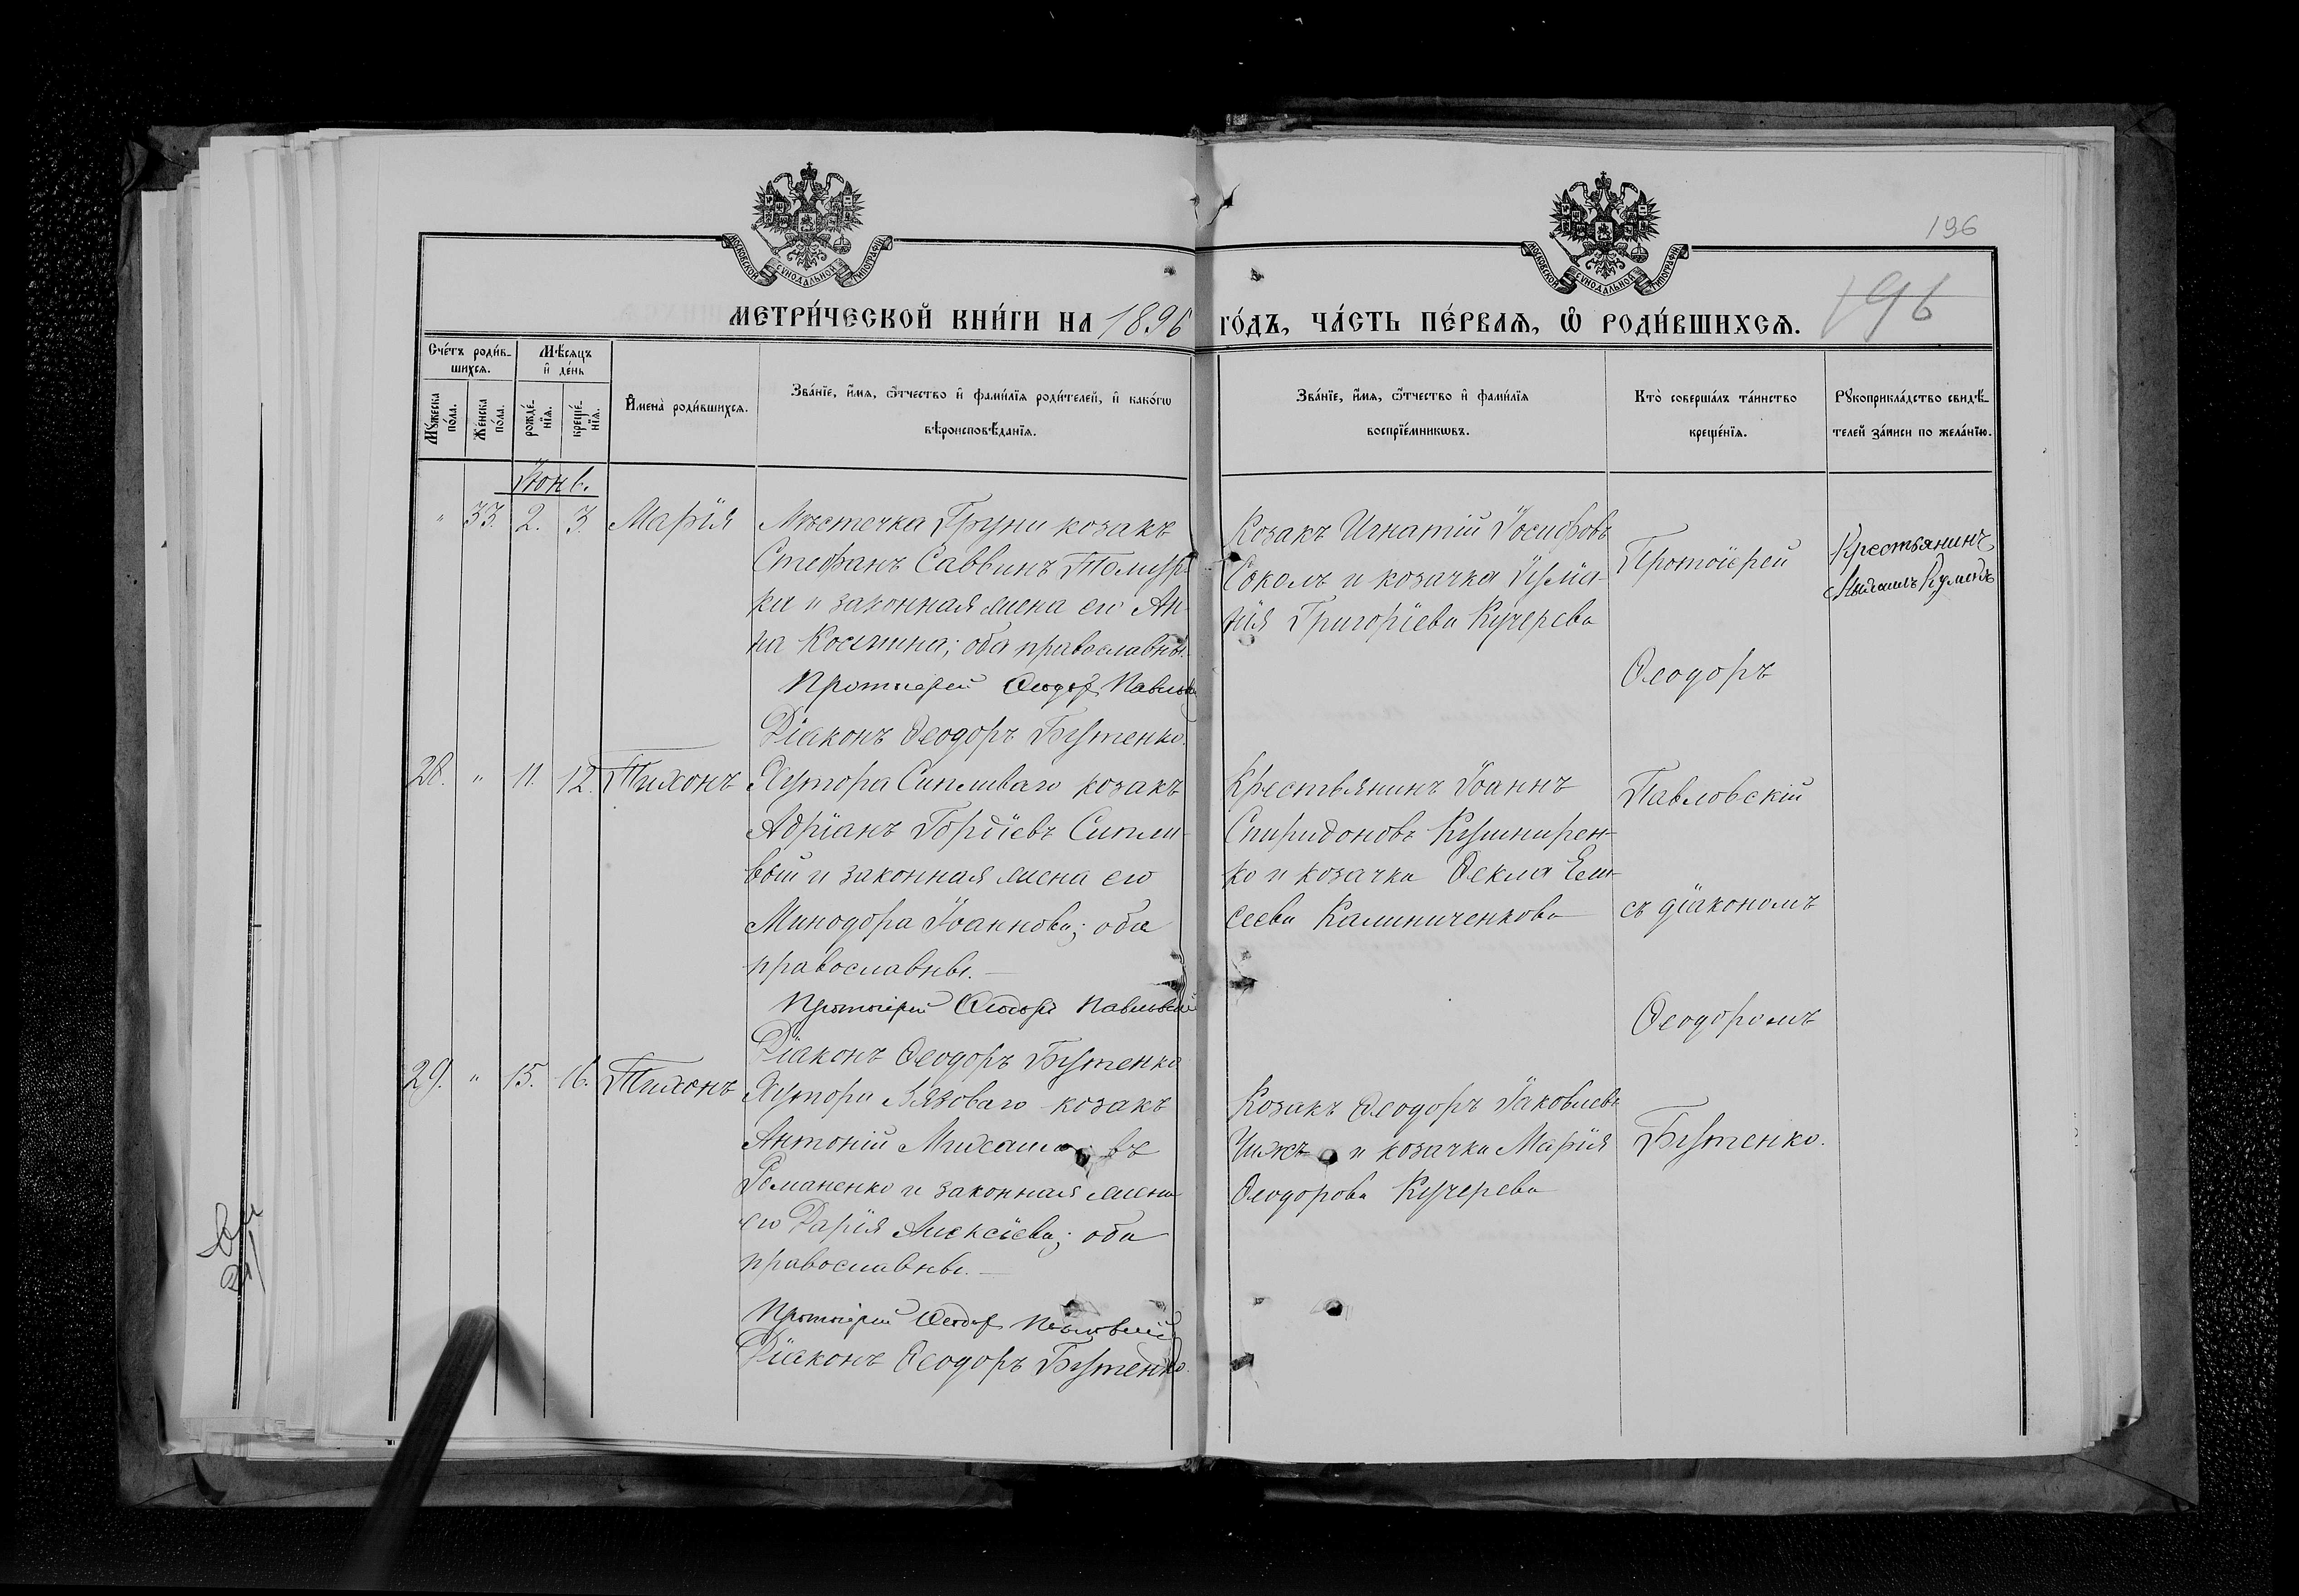 МОСКОВСКОЙ СѴНОДАЛЬНОЙ ТИПОГРАФІИ
МОСКОВСКОЙ СѴНОДАЛЬНОЙ ТИПОГРАФІИ
196
196
МЕТРИ́ЧЕСКОЙ КНИ́ГИ НА 1896 ГО́ДЪ, ЧА́СТЬ ПЕ́РВАѦ, Ѡ҆ РОДИ́ВШИХСѦ.
Сче́тъ роди́в-
шихсѧ.
Мѣ́сѧцъ
и҆ де́нь
Мꙋ́жеска по́ла.
Же́нска по́ла.
рожде́-
нїѧ.
креще́-
нїѧ.
И҆мена̀ роди́вшихсѧ.
Зва́нїе, и҆́мѧ, ѻ҆́тчество и҆ фами́лїѧ роди́телей, и҆ како́гѡ
вѣроисповѣ́данїѧ.
Зва́нїе, и҆́мѧ, ѻ҆́тчество и҆ фами́лїѧ
воспрїе́мникѡвъ.
Кто̀ соверша́лъ та́инство
креще́нїѧ.
Рꙋкоприкла́дство свидѣ́-
телей за́писи по жела́нїю.
Іюнь.
" 33. 2. 3. Марія
Мѣстечка Груни козакъ
Стефанъ Саввинъ
ка и законная жена его Ан-
на Космина; оба православны.
Протоіерей Ѳеодоръ
Діаконъ Ѳеодоръ Бутенко.
Козакъ Игнатій Іосифовъ
Соколъ и козачка
нія Григоріева Кучерева
Протоіерей
Ѳеодоръ
Крестьянинъ
28. " 11. 12. Тихонъ
Хутора Сипливаго козакъ
Адріанъ Гордіевъ Сипли-
вый и законная жена его
Минодора Іоаннова; оба
православны.—
Протоіерей Ѳеодоръ Павловскій
Діаконъ Ѳеодоръ Бутенко
Крестьянинъ Іоаннъ
Спиридоновъ Кушнирен-
ко и козачка Ѳекла Ели-
сеева Калиниченкова
Павловскій
съ діакономъ
Ѳеодоромъ
29. " 15. 16. Тихонъ
Хутора Вязоваго козакъ
Антоній Михаиловъ
Романенко и законная жена
его Дарія Алексіева; оба
православны.—
Протоіерей Ѳеодоръ Павловскій
Діаконъ Ѳеодоръ Бутенко.
Козакъ Ѳеодоръ Іаковлевъ
Чижъ и козачка Марія
Ѳеодорова Кучерева
Бутенко.